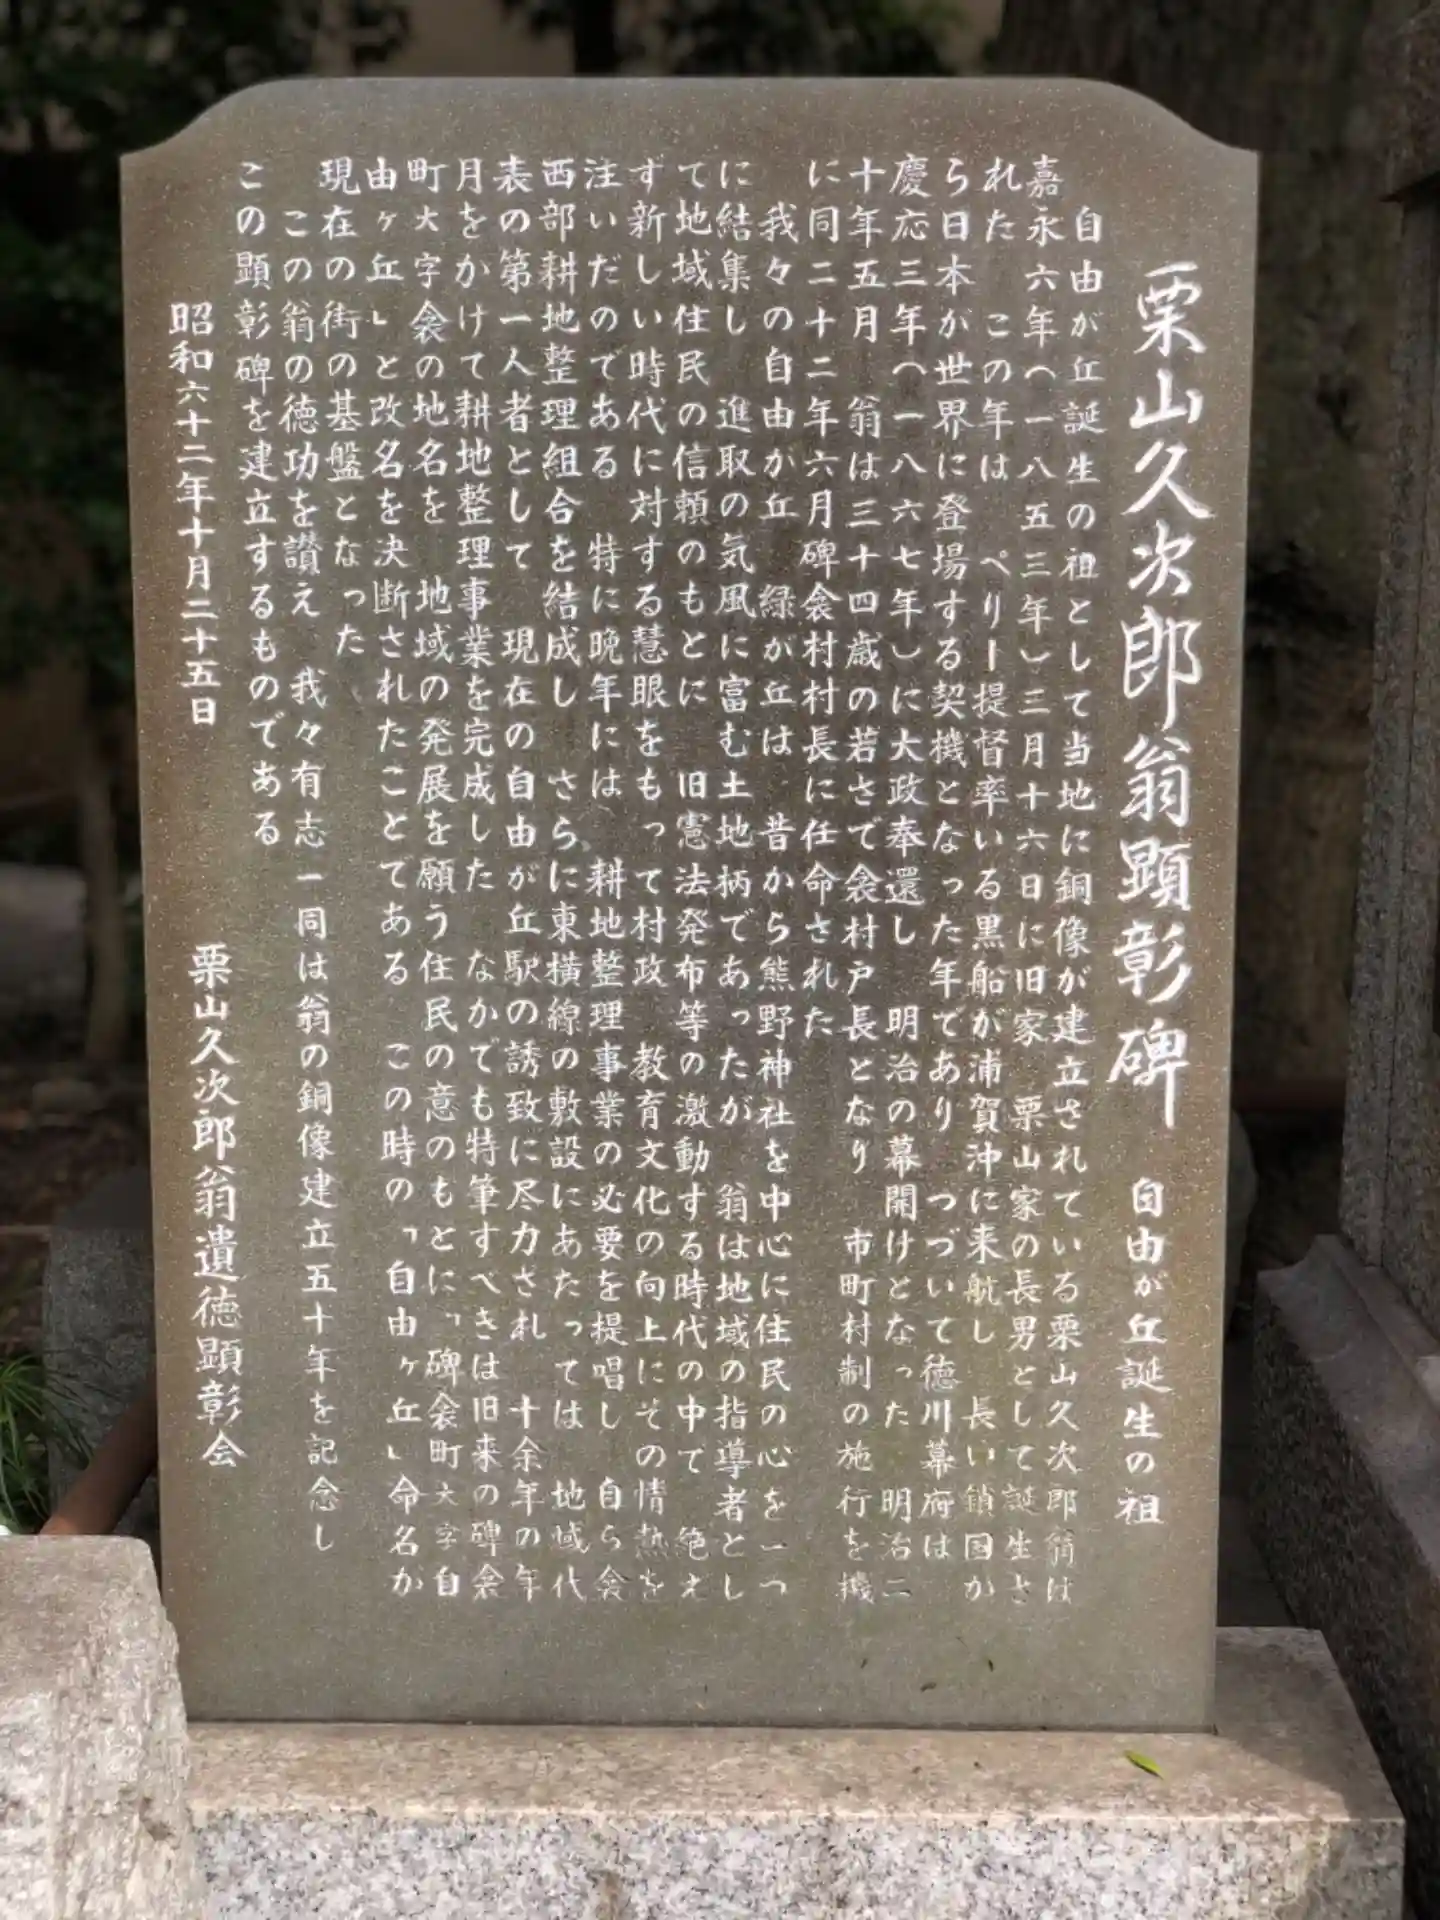 栗山久次郎翁顕彰碑 自由が丘誕生の祖
自由が丘誕生の祖として当地に銅像が建立されている栗山久次郎翁は
嘉永六年(一八五三年)三月十六日に旧家 栗山家の長男として誕生さ
れた この年は ペリー提督率いる黒船が浦賀沖に来航し 長い鎖国か
ら日本が世界に登場する契機となった年であり つづいて徳川幕府は
慶応三年(一八六七年)に大政奉還し 明治の幕開けとなった 明治二
十年五月 翁は三十四歳の若さで衾村戸長となり 市町村制の施行を機
に同二十二年六月碑衾村村長に任命された
我々の自由が丘 緑が丘は 昔から熊野神社を中心に住民の心を一つ
に結集し 進取の気風に富む土地柄であったが 翁は地域の指導者とし
て地域住民の信頼のもとに 旧憲法発布等の激動する時代の中て 絶え
ず新しい時代に対する慧眼をもって村政 教育文化の向上にその情熱を
注いだのである 特に晩年には 耕地整理事業の必要を提唱し 自ら衾
西部耕地整理組合を結成し さらに東横線の敷設にあたっては 地域代
表の第一人者として 現在の自由が丘駅の誘致に尽力され 十余年の年
月をかけて耕地整理事業を完成した なかでも特筆すべきは旧来の碑衾
町大字衾の地名を 地域の発展を願う住民の意のもとに「碑衾町大字自
由ヶ丘」と改名を決断されたことである この時の「自由ヶ丘」命名か
現在の街の基盤となった
この翁の徳功を讃え 我々有志一同は翁の銅像建立五十年を記念し
この顕彰碑を建立するものである
昭和六十二年十月二十五日 栗山久次郎翁遺徳顕彰会